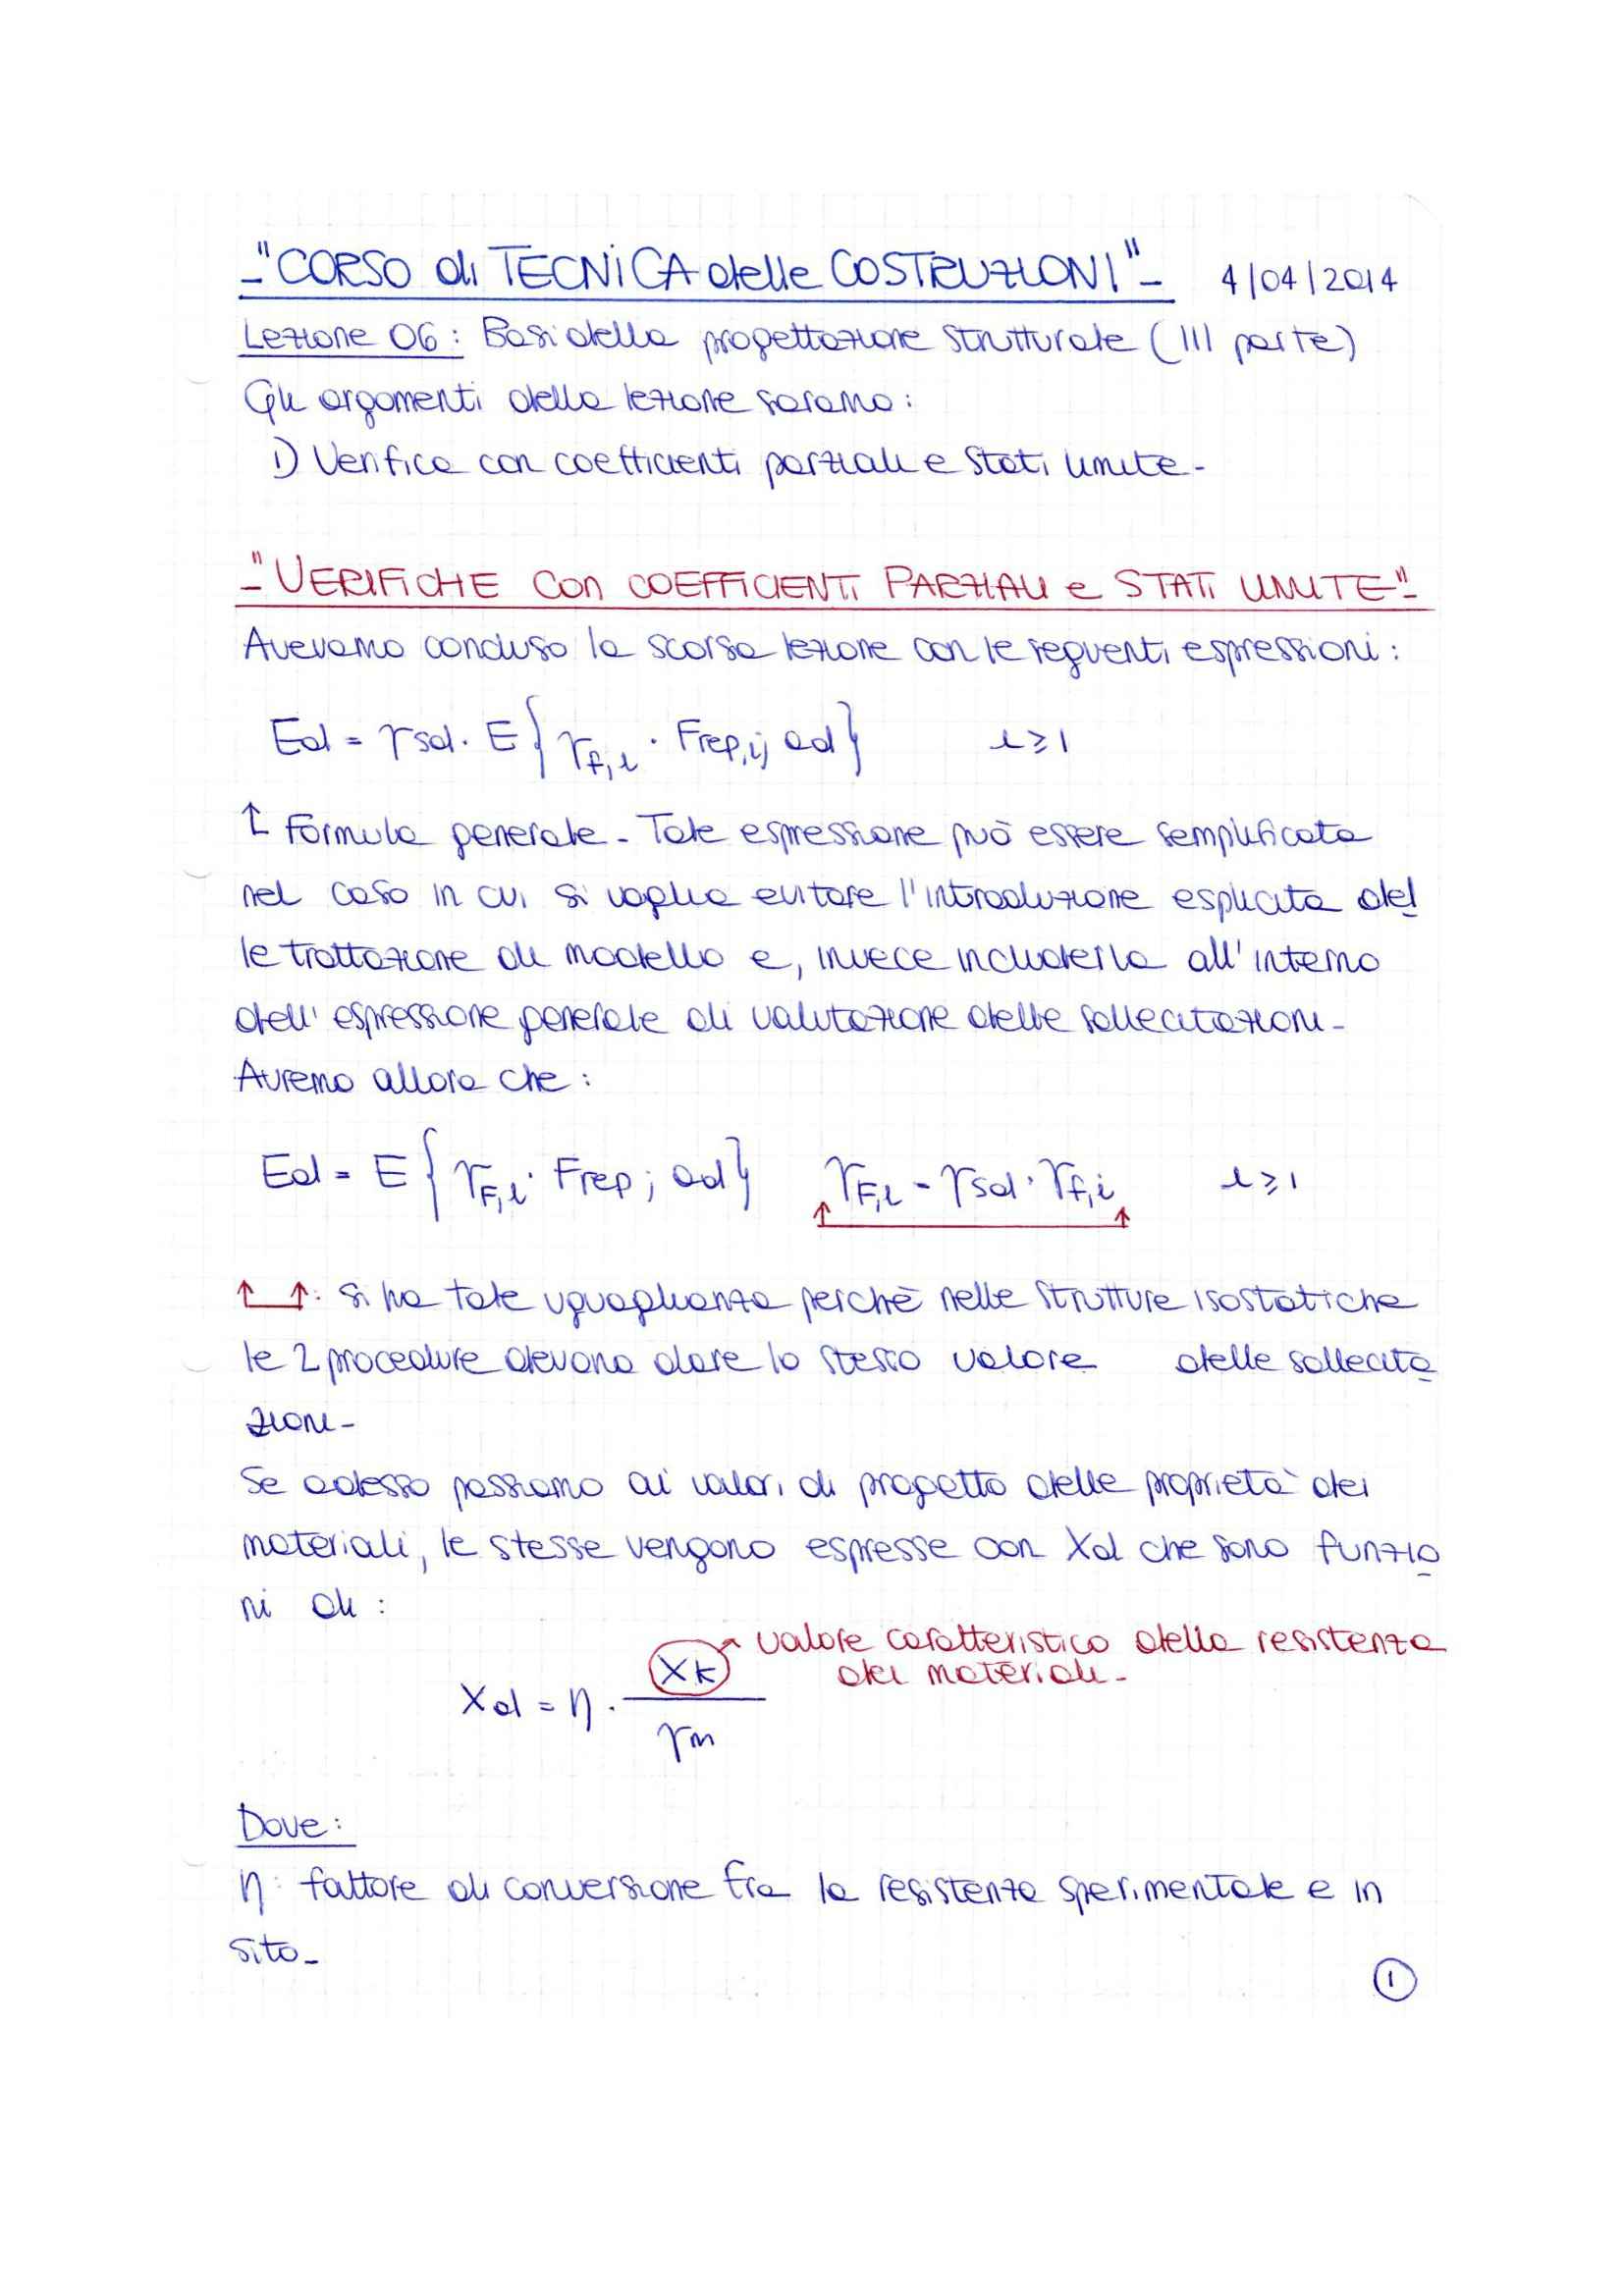 -"CORSO di TECNICA delle COSTRUZIONI"- 4/04/2014
Lezione 06: Basi della progettazione strutturale (III parte)
Gli argomenti della lezione saranno:
1) Verifica con coefficienti parziali e Stati limite-
-"VERIFICHE con COEFFICIENTI PARZIALI e STATI LIMITE"-
Avevamo concluso la scorsa lezione con le seguenti espressioni:
Ed = γsd · E{γf,i · Frep,i; ad} i ≥ 1
↑ Formula generale- Tale espressione può essere semplificata
nel caso in cui si voglia evitare l'introduzione esplicita del
le trattazione di modello e, invece includerla all'interno
dell'espressione generale di valutazione delle sollecitazioni-
Avremo allora che:
Ed = E{γF,i · Frep; ad} γF,i = γsd · γf,i i ≥ 1
↑ ↑: Si ha tale uguaglianza perchè nelle strutture isostatiche
le 2 procedure devono dare lo stesso valore delle sollecita
zioni-
Se adesso passiamo ai valori di progetto delle proprietà dei
materiali, le stesse vengono espresse con Xd che sono funzio
ni di:
Xk → valore caratteristico della resistenza
dei materiali-
Xd = η · Xk / γm
Dove:
η: fattore di conversione fra la resistenza sperimentale e in
sito-
1